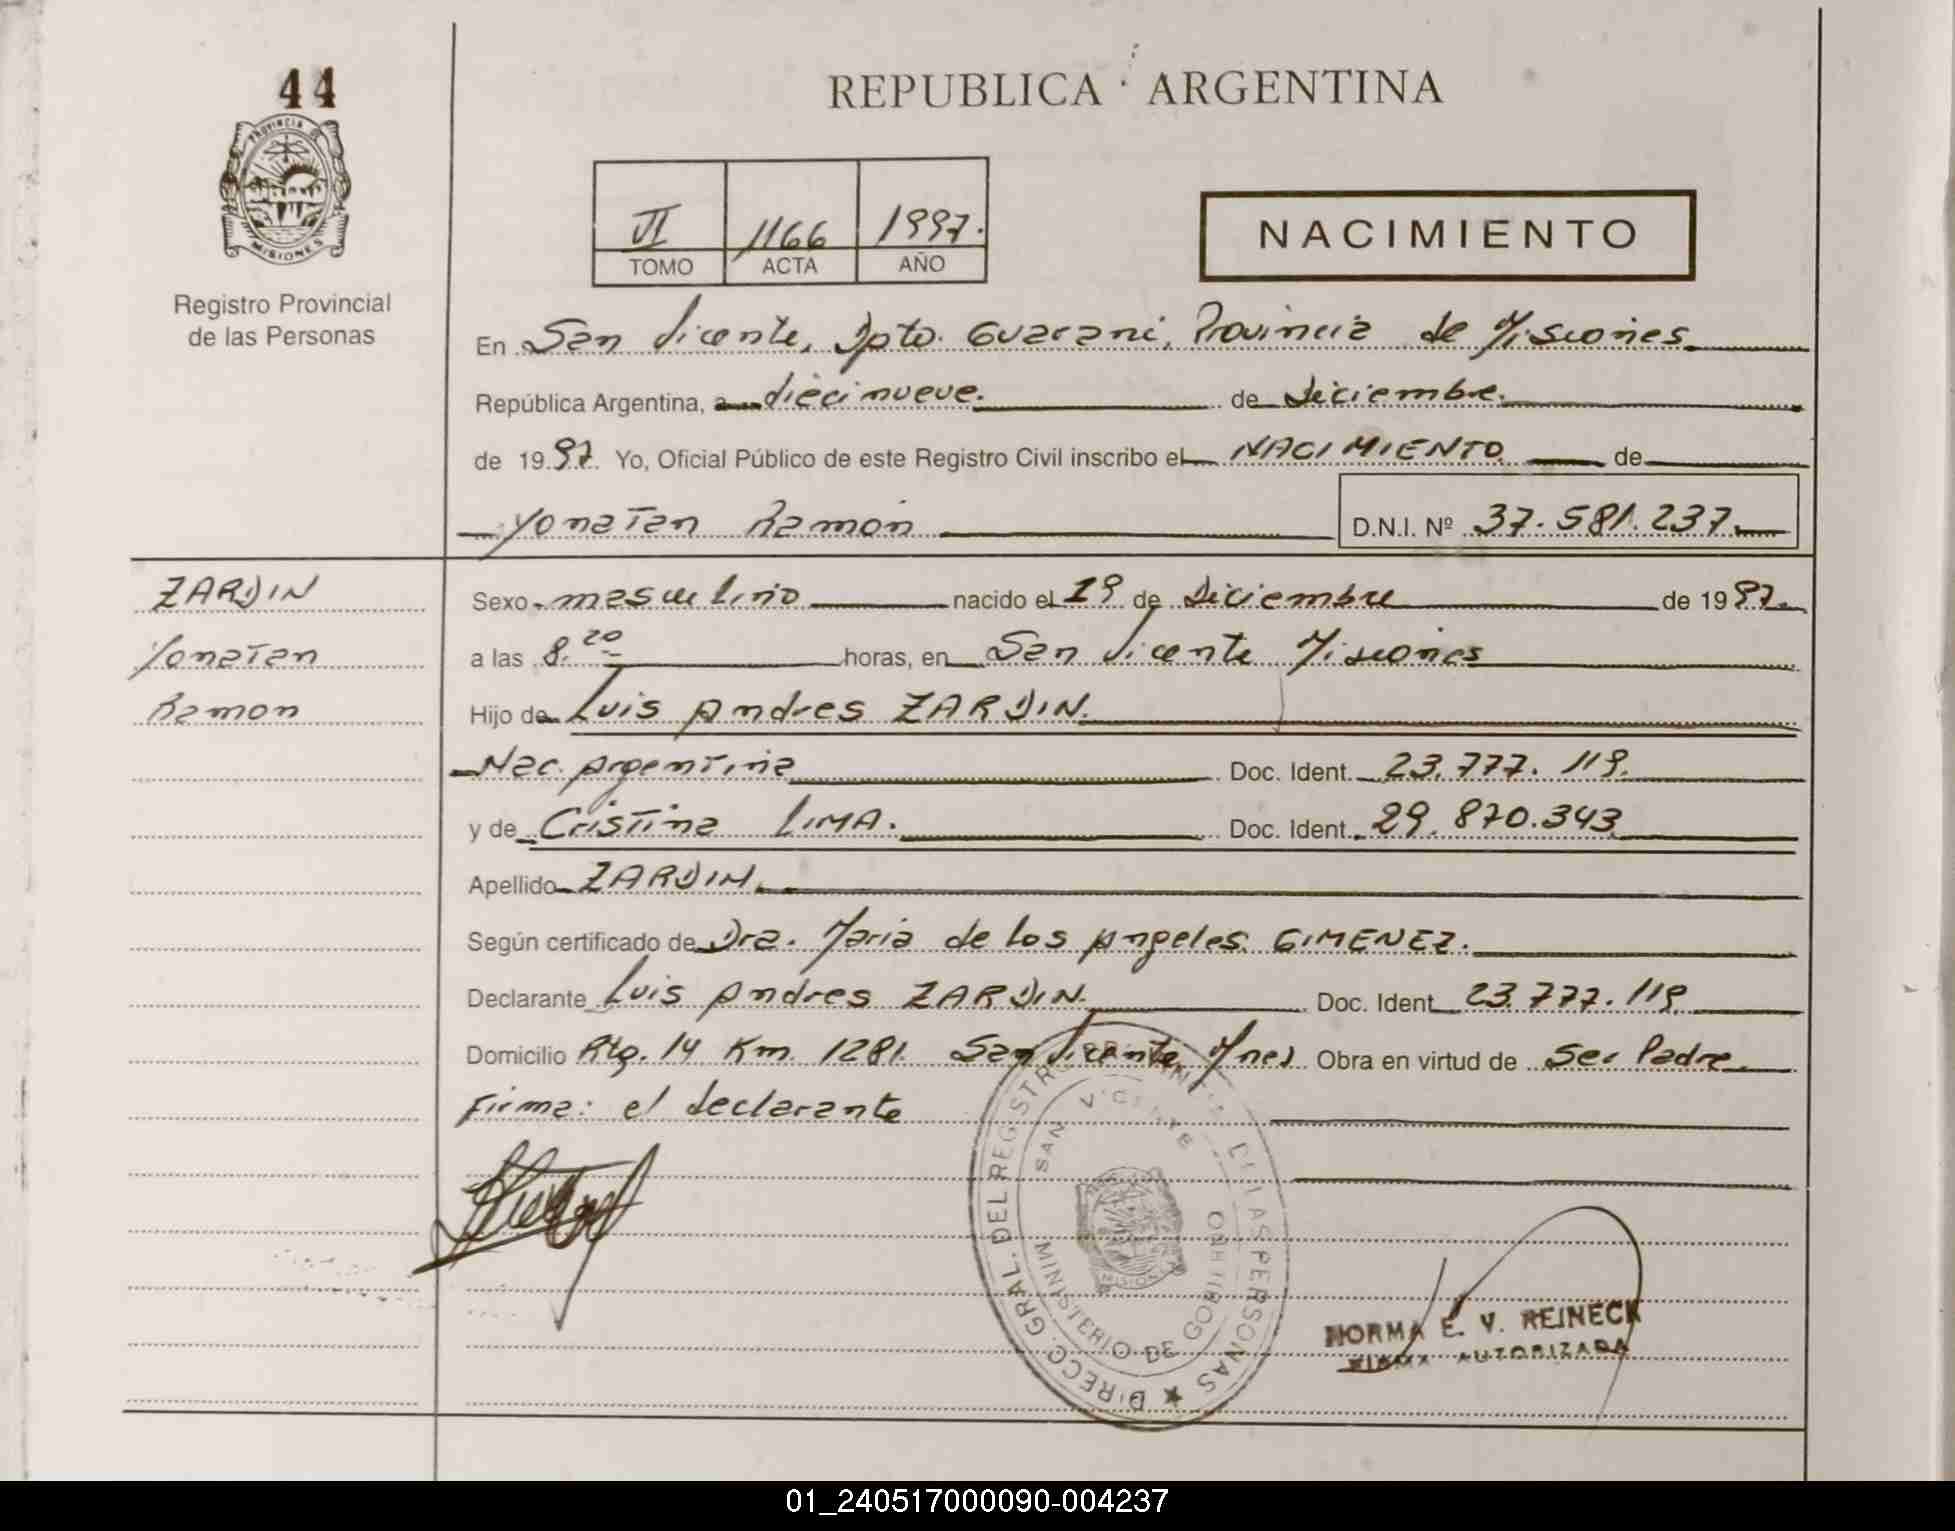 44
REPUBLICA ARGENTINA
PROVINCIA DE
MISIONES
Registro Provincial
de las Personas
VI 1166 1997.
TOMO ACTA AÑO
NACIMIENTO
En San Vicente, Dpto. Guarani, Provincia de Misiones
República Argentina, a diecinueve. de Diciembre.
de 19 97. Yo, Oficial Público de este Registro Civil inscribo el NACIMIENTO de
Yonatan Ramon D.N.I. Nº 37.581.237.
ZARDIN
Yonatan
Ramon
Sexo masculino nacido el 19 de Diciembre de 19 97.
a las 8.20 horas, en San Vicente Misiones
Hijo de Luis Andres ZARDIN.
Nac. Argentina Doc. Ident. 23.777.119.
y de Cristina LIMA. Doc. Ident. 29.870.343
Apellido ZARDIN.
Según certificado de Dra. Maria de los Angeles GIMENEZ.
Declarante Luis Andres ZARDIN. Doc. Ident. 23.777.119.
Domicilio Rta. 14 Km. 1281. San Vicente, Mnes Obra en virtud de Ser Padre.
Firma: el declarante
DIRECC. GRAL. DEL REGISTRO DE LAS PERSONAS
SAN VICENTE
MINISTERIO DE GOBIERNO
MISIONES
NORMA E. V. REINECK
FIRMA AUTORIZADA
01_240517000090-004237